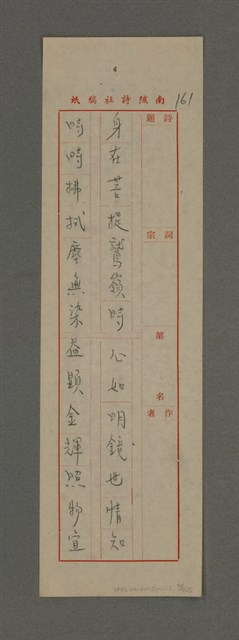 161
南陔詩社稿紙
詩題
詞宗
第 名
作者
身在菩提鷲嶺時 心如明鏡也情知
時時拂拭塵無染 益顯金輝照物宜